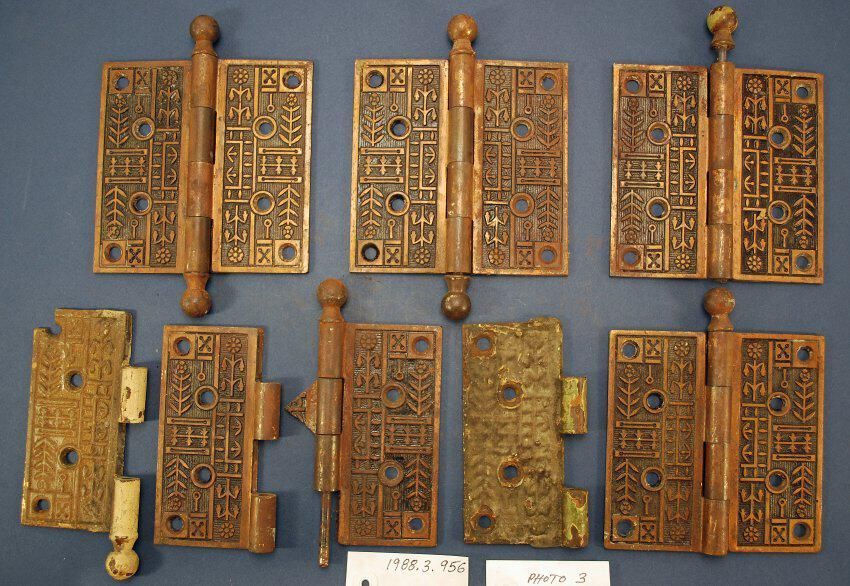 1988.3.956
PHOTO 3